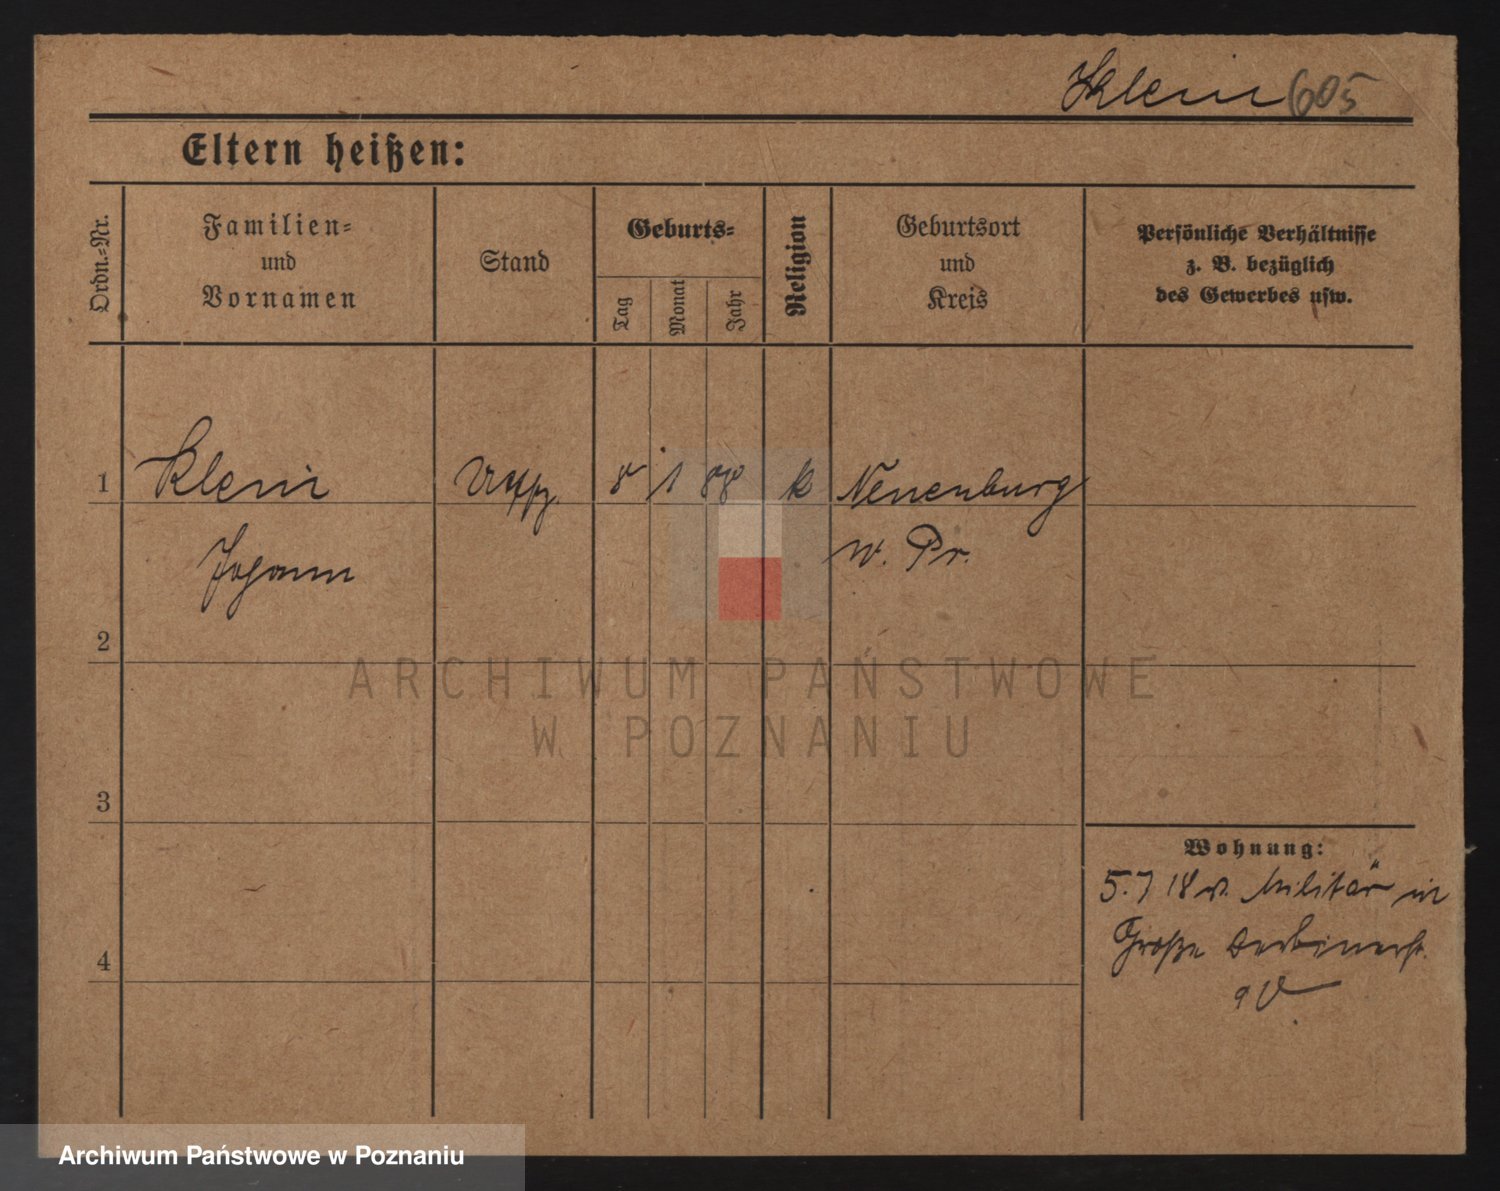 Klein 605
Eltern heißen:
Ordn.-Nr.
Familien-
und
Vornamen
Stand
Geburts-
Tag
Monat
Jahr
Religion
Geburtsort
und
Kreis
Persönliche Verhältnisse
z. B. bezüglich
des Gewerbes usw.
1 Klein 8 1 88 k Neuenburg
Johann W. Pr.
2
3
4
Wohnung:
5.7 18 v. Militär in
Große
ARCHIWUM PAŃSTWOWE
W POZNANIU
Archiwum Państwowe w Poznaniu